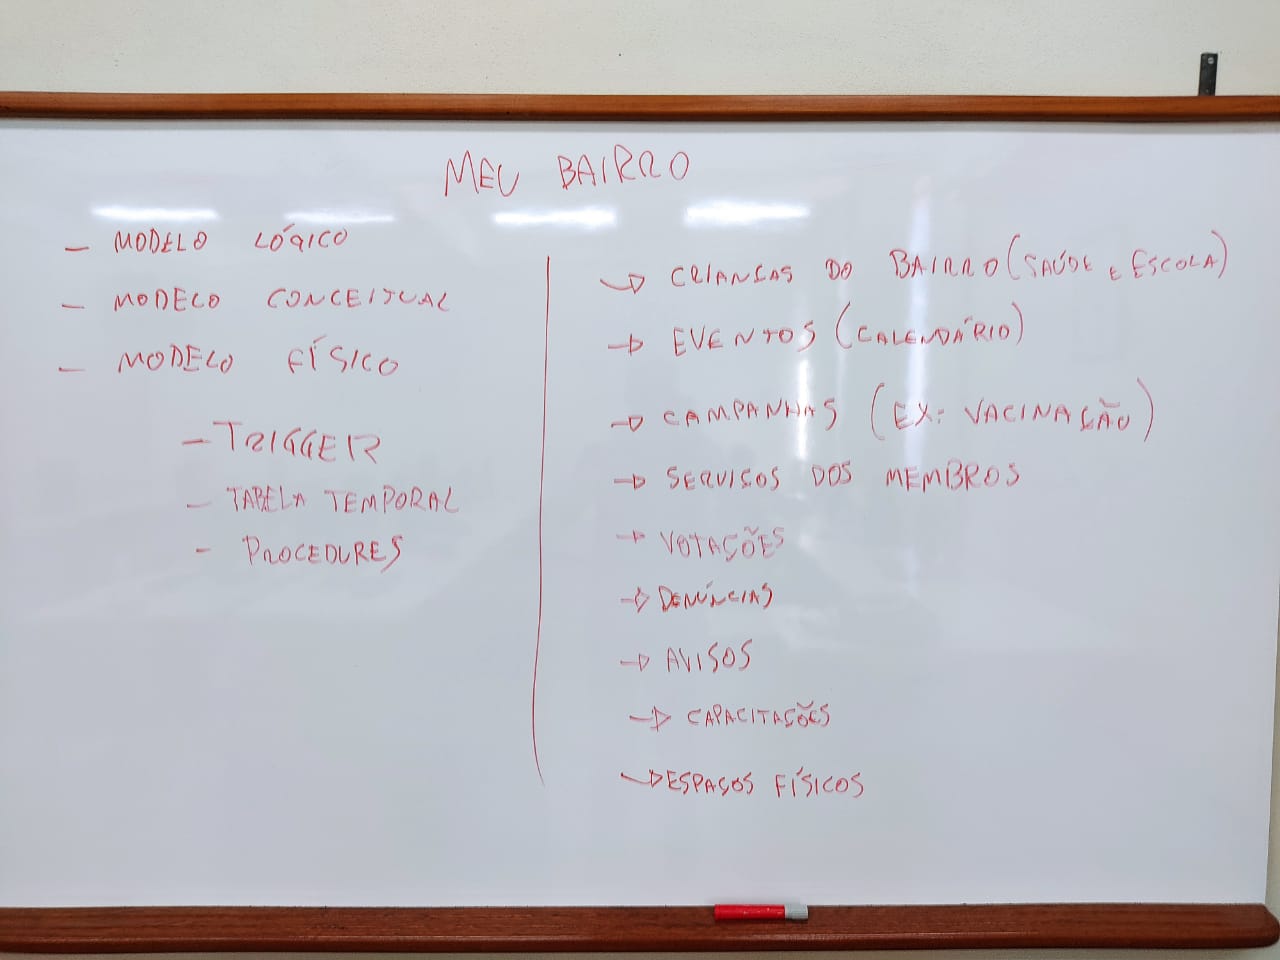 MEU BAIRRO
- MODELO LÓGICO
- MODELO CONCEITUAL
- MODELO FÍSICO
- TRIGGER
- TABELA TEMPORAL
- PROCEDURES
→ CRIANÇAS DO BAIRRO (SAÚDE E ESCOLA)
→ EVENTOS (CALENDÁRIO)
→ CAMPANHAS (EX: VACINAÇÃO)
→ SERVIÇOS DOS MEMBROS
→ VOTAÇÕES
→ DENÚNCIAS
→ AVISOS
→ CAPACITAÇÕES
→ ESPAÇOS FÍSICOS